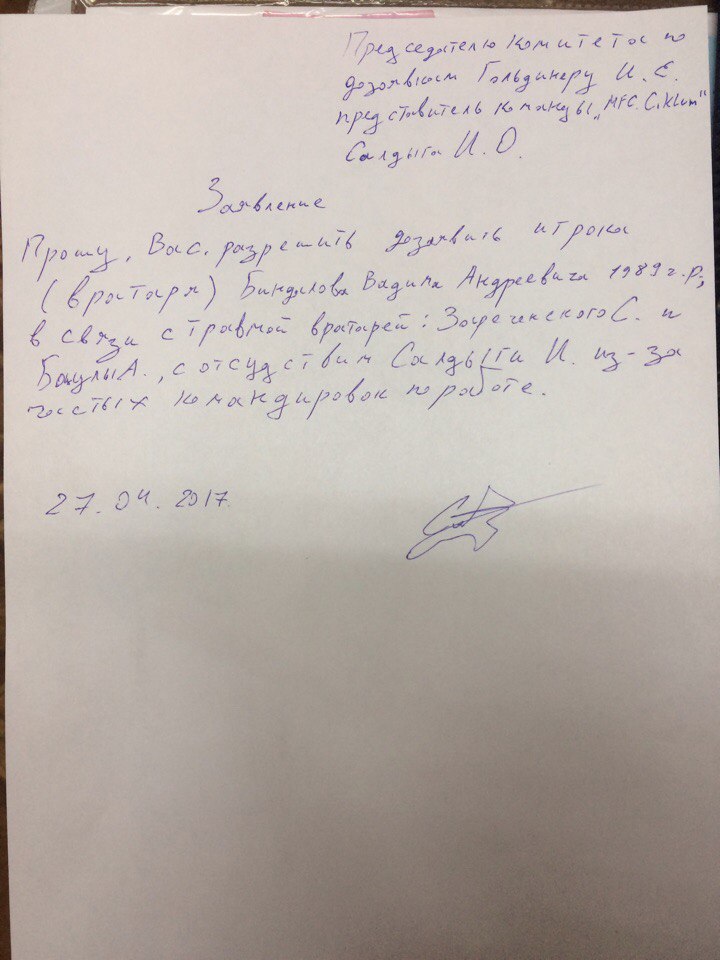 Председателю комитета по
дозаявкам Гольдинеру И. Е.
представитель команды „MFC. Ciklum"
Салдыга И. О.
Заявление
Прошу, Вас, разрешить дозаявить игрока
(вратаря) Биндалова Вадима Андреевича 1989 г.р;
в связи с травмой вратарей: Зареченского С. и
Бакулы А., с отсудствим Салдыги И. из-за
частых командировок по работе.
27. 04. 2017.